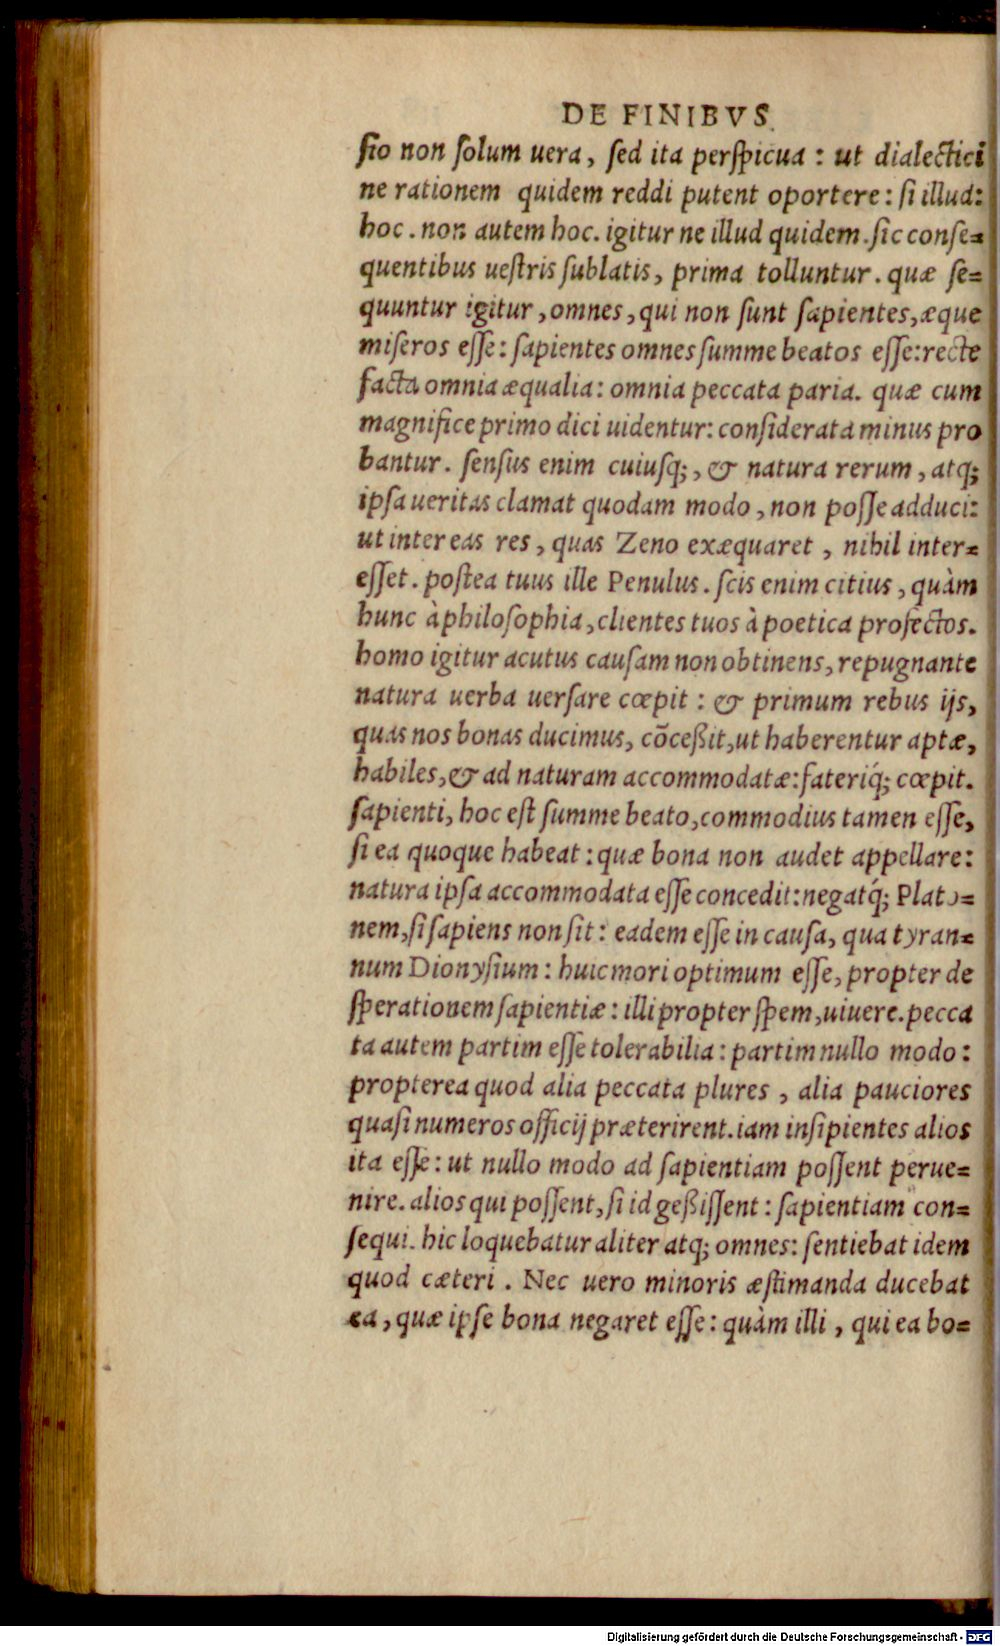 DE FINIBVS
sio non solum uera, sed ita perspicua : ut dialectici
ne rationem quidem reddi putent oportere : si illud:
hoc . non autem hoc. igitur ne illud quidem . sic conse=
quentibus uestris sublatis, prima tolluntur . quæ se=
quuntur igitur , omnes , qui non sunt sapientes, æque
miseros esse : sapientes omnes summe beatos esse: recte
facta omnia æqualia : omnia peccata paria. quæ cum
magnifice primo dici uidentur: considerata minus pro
bantur . sensus enim cuiusq; , & natura rerum , atq;
ipsa ueritas clamat quodam modo , non posse adduci:
ut inter eas res , quas Zeno exæquaret , nihil inter=
esset . postea tuus ille Penulus . scis enim citius , quàm
hunc à philosophia, clientes tuos à poetica profectos.
homo igitur acutus causam non obtinens, repugnante
natura uerba uersare cœpit : & primum rebus ijs,
quas nos bonas ducimus, cõceßit, ut haberentur aptæ,
habiles, & ad naturam accommodatæ: fateriq́; cœpit.
sapienti, hoc est summe beato, commodius tamen esse,
si ea quoque habeat : quæ bona non audet appellare:
natura ipsa accommodata esse concedit: negatq́; Plato=
nem, si sapiens non sit : eadem esse in causa, qua tyran=
num Dionysium : huic mori optimum esse, propter de
sperationem sapientiæ : illi propter spem, uiuere. pecca
ta autem partim esse tolerabilia : partim nullo modo :
propterea quod alia peccata plures , alia pauciores
quasi numeros officij præterirent. iam insipientes alios
ita esse : ut nullo modo ad sapientiam possent perue=
nire. alios qui possent, si id geßissent : sapientiam con=
sequi. hic loquebatur aliter atq; omnes: sentiebat idem
quod cæteri . Nec uero minoris æstimanda ducebat
ea , quæ ipse bona negaret esse : quàm illi , qui ea bo=
Digitalisierung gefördert durch die Deutsche Forschungsgemeinschaft - DFG